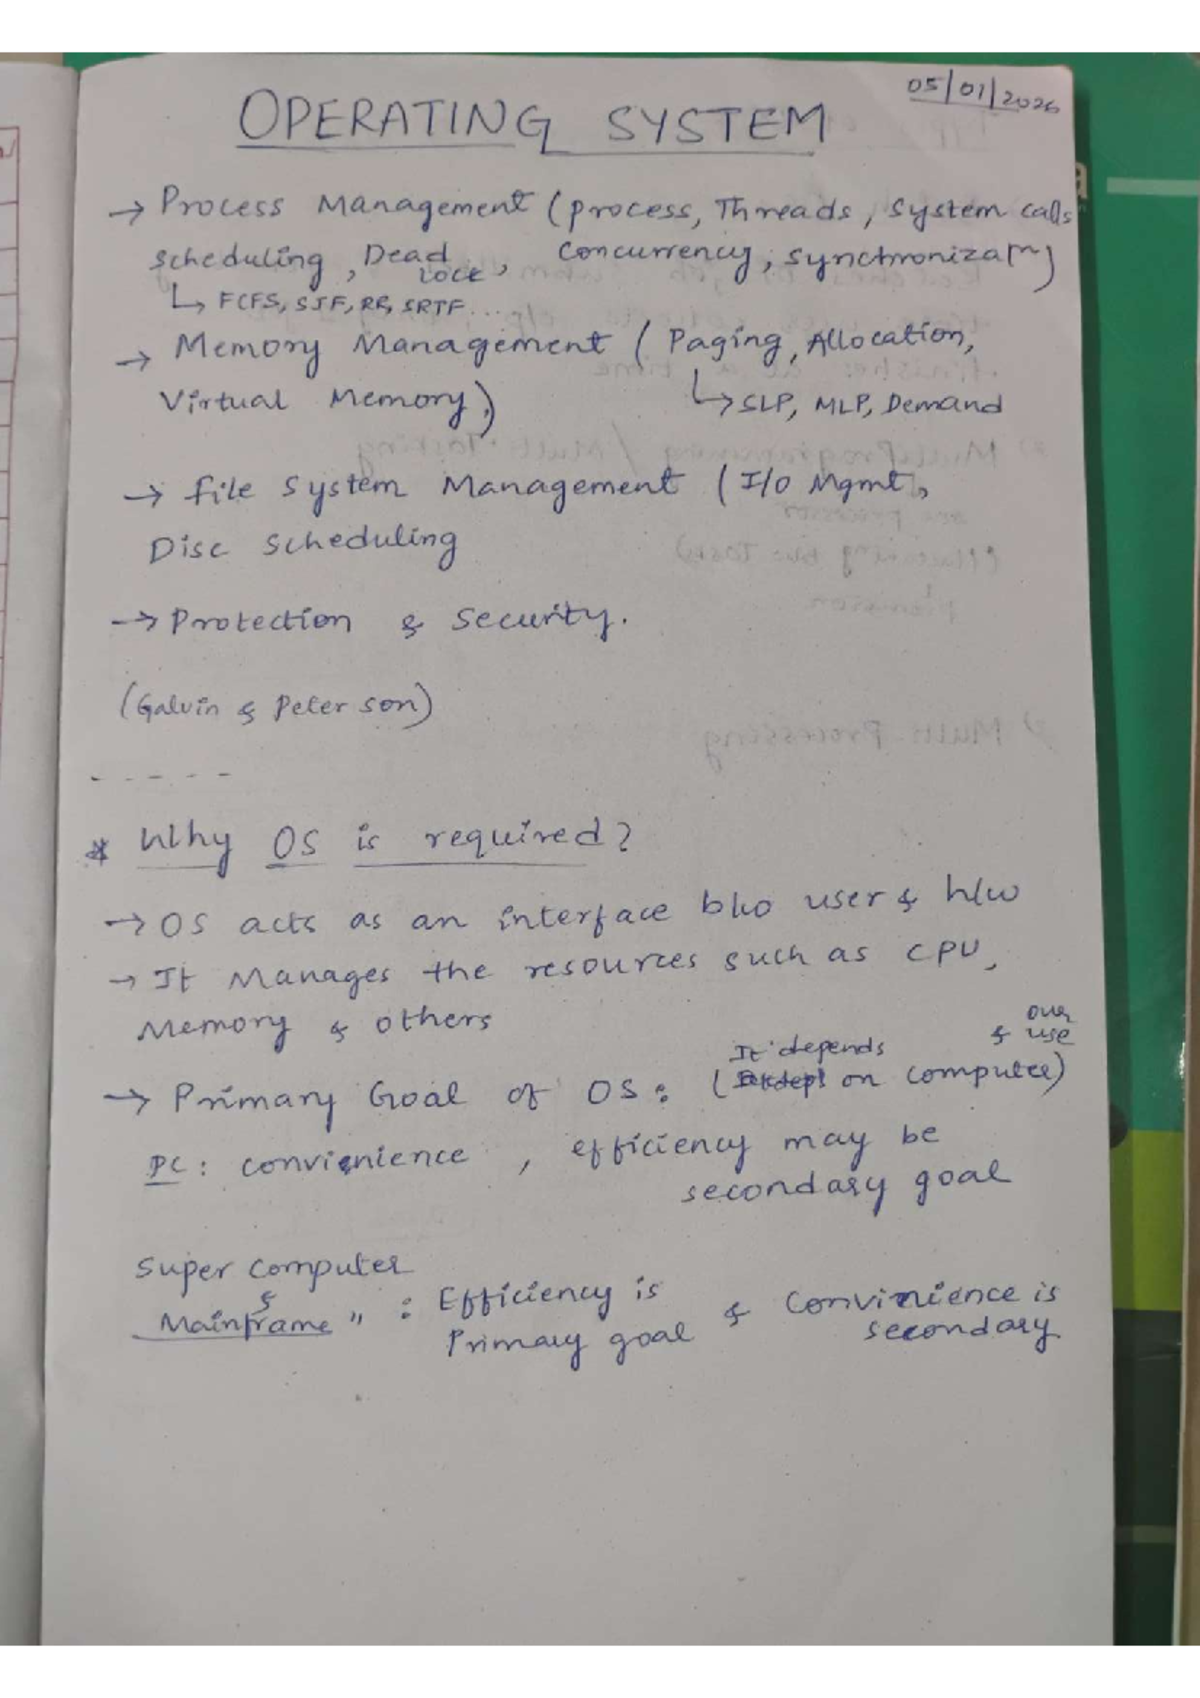 05/01/2026
OPERATING SYSTEM
→ Process Management (process, Threads, system calls
scheduling, Dead lock, concurrency, synchronizaⁿ)
↳ FCFS, SJF, RR, SRTF...
→ Memory Management ( Paging, Allocation,
Virtual Memory)
↳ SLP, MLP, Demand
→ file system Management ( I/O Mgmt,
Disc scheduling
→ Protection & Security.
(Galvin & Peter son)
-----
* Why OS is required?
→ OS acts as an interface b/w user & h/w
→ It Manages the resources such as CPU,
Memory & others
→ Primary Goal of OS: (It depends on computer & our use)
PC: convienience, efficiency may be
secondary goal
Super computer
&
Mainframe " : Efficiency is Primary goal & Convinience is secondary